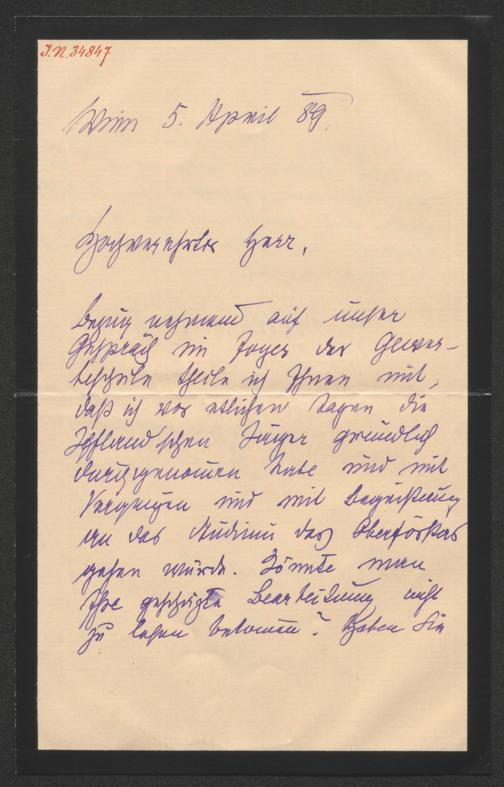 J.N. 34847
Wien 5. April 89.
Hochverehrter Herr,
Bezug nehmend auf unser
Gespräch im Foyer der Gewer-
beschule theile ich Ihnen mit,
daß ich vor etlichen Tagen die
Iffland'schen Jäger gründlich
durchgenommen habe und mit
Vergnügen und mit Begeisterung
an das Studium des Oberförsters
gehen würde. Könnte man
Ihre geschätzte Bearbeitung nicht
zu lesen bekommen? Haben Sie